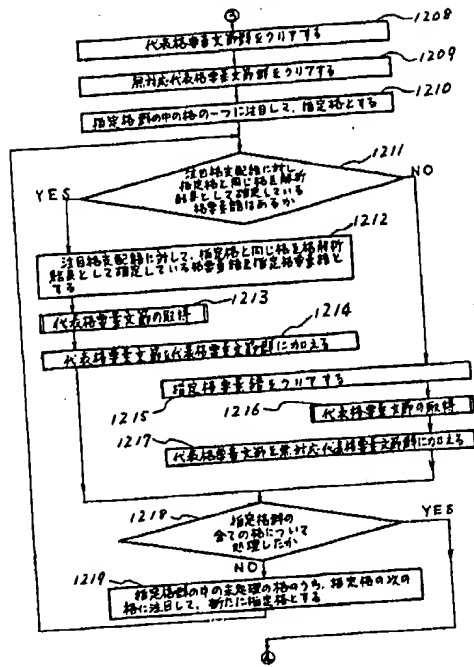 ③
1208
代表格要素文節群をクリアする
1209
無対応代表格要素文節群をクリアする
1210
指定格群の中の格の一つに注目して、指定格とする
1211
注目格支配語に対し
指定格と同じ格を解析
結果として指定している
格要素語はあるか
YES
NO
1212
注目格支配語に対して、指定格と同じ格を格解析
結果として指定している格要素語を指定格要素語と
する
1213
代表格要素文節の取得
1214
代表格要素文節を代表格要素文節群に加える
指定格要素語をクリアする
1215
1216
代表格要素文節の取得
1217
代表格要素文節を無対応代表格要素文節群に加える
1218
指定格群の
全ての格について
処理したか
YES
NO
1219
指定格群の中の未処理の格のうち、指定格の次の
格に注目して、新たに指定格とする
④